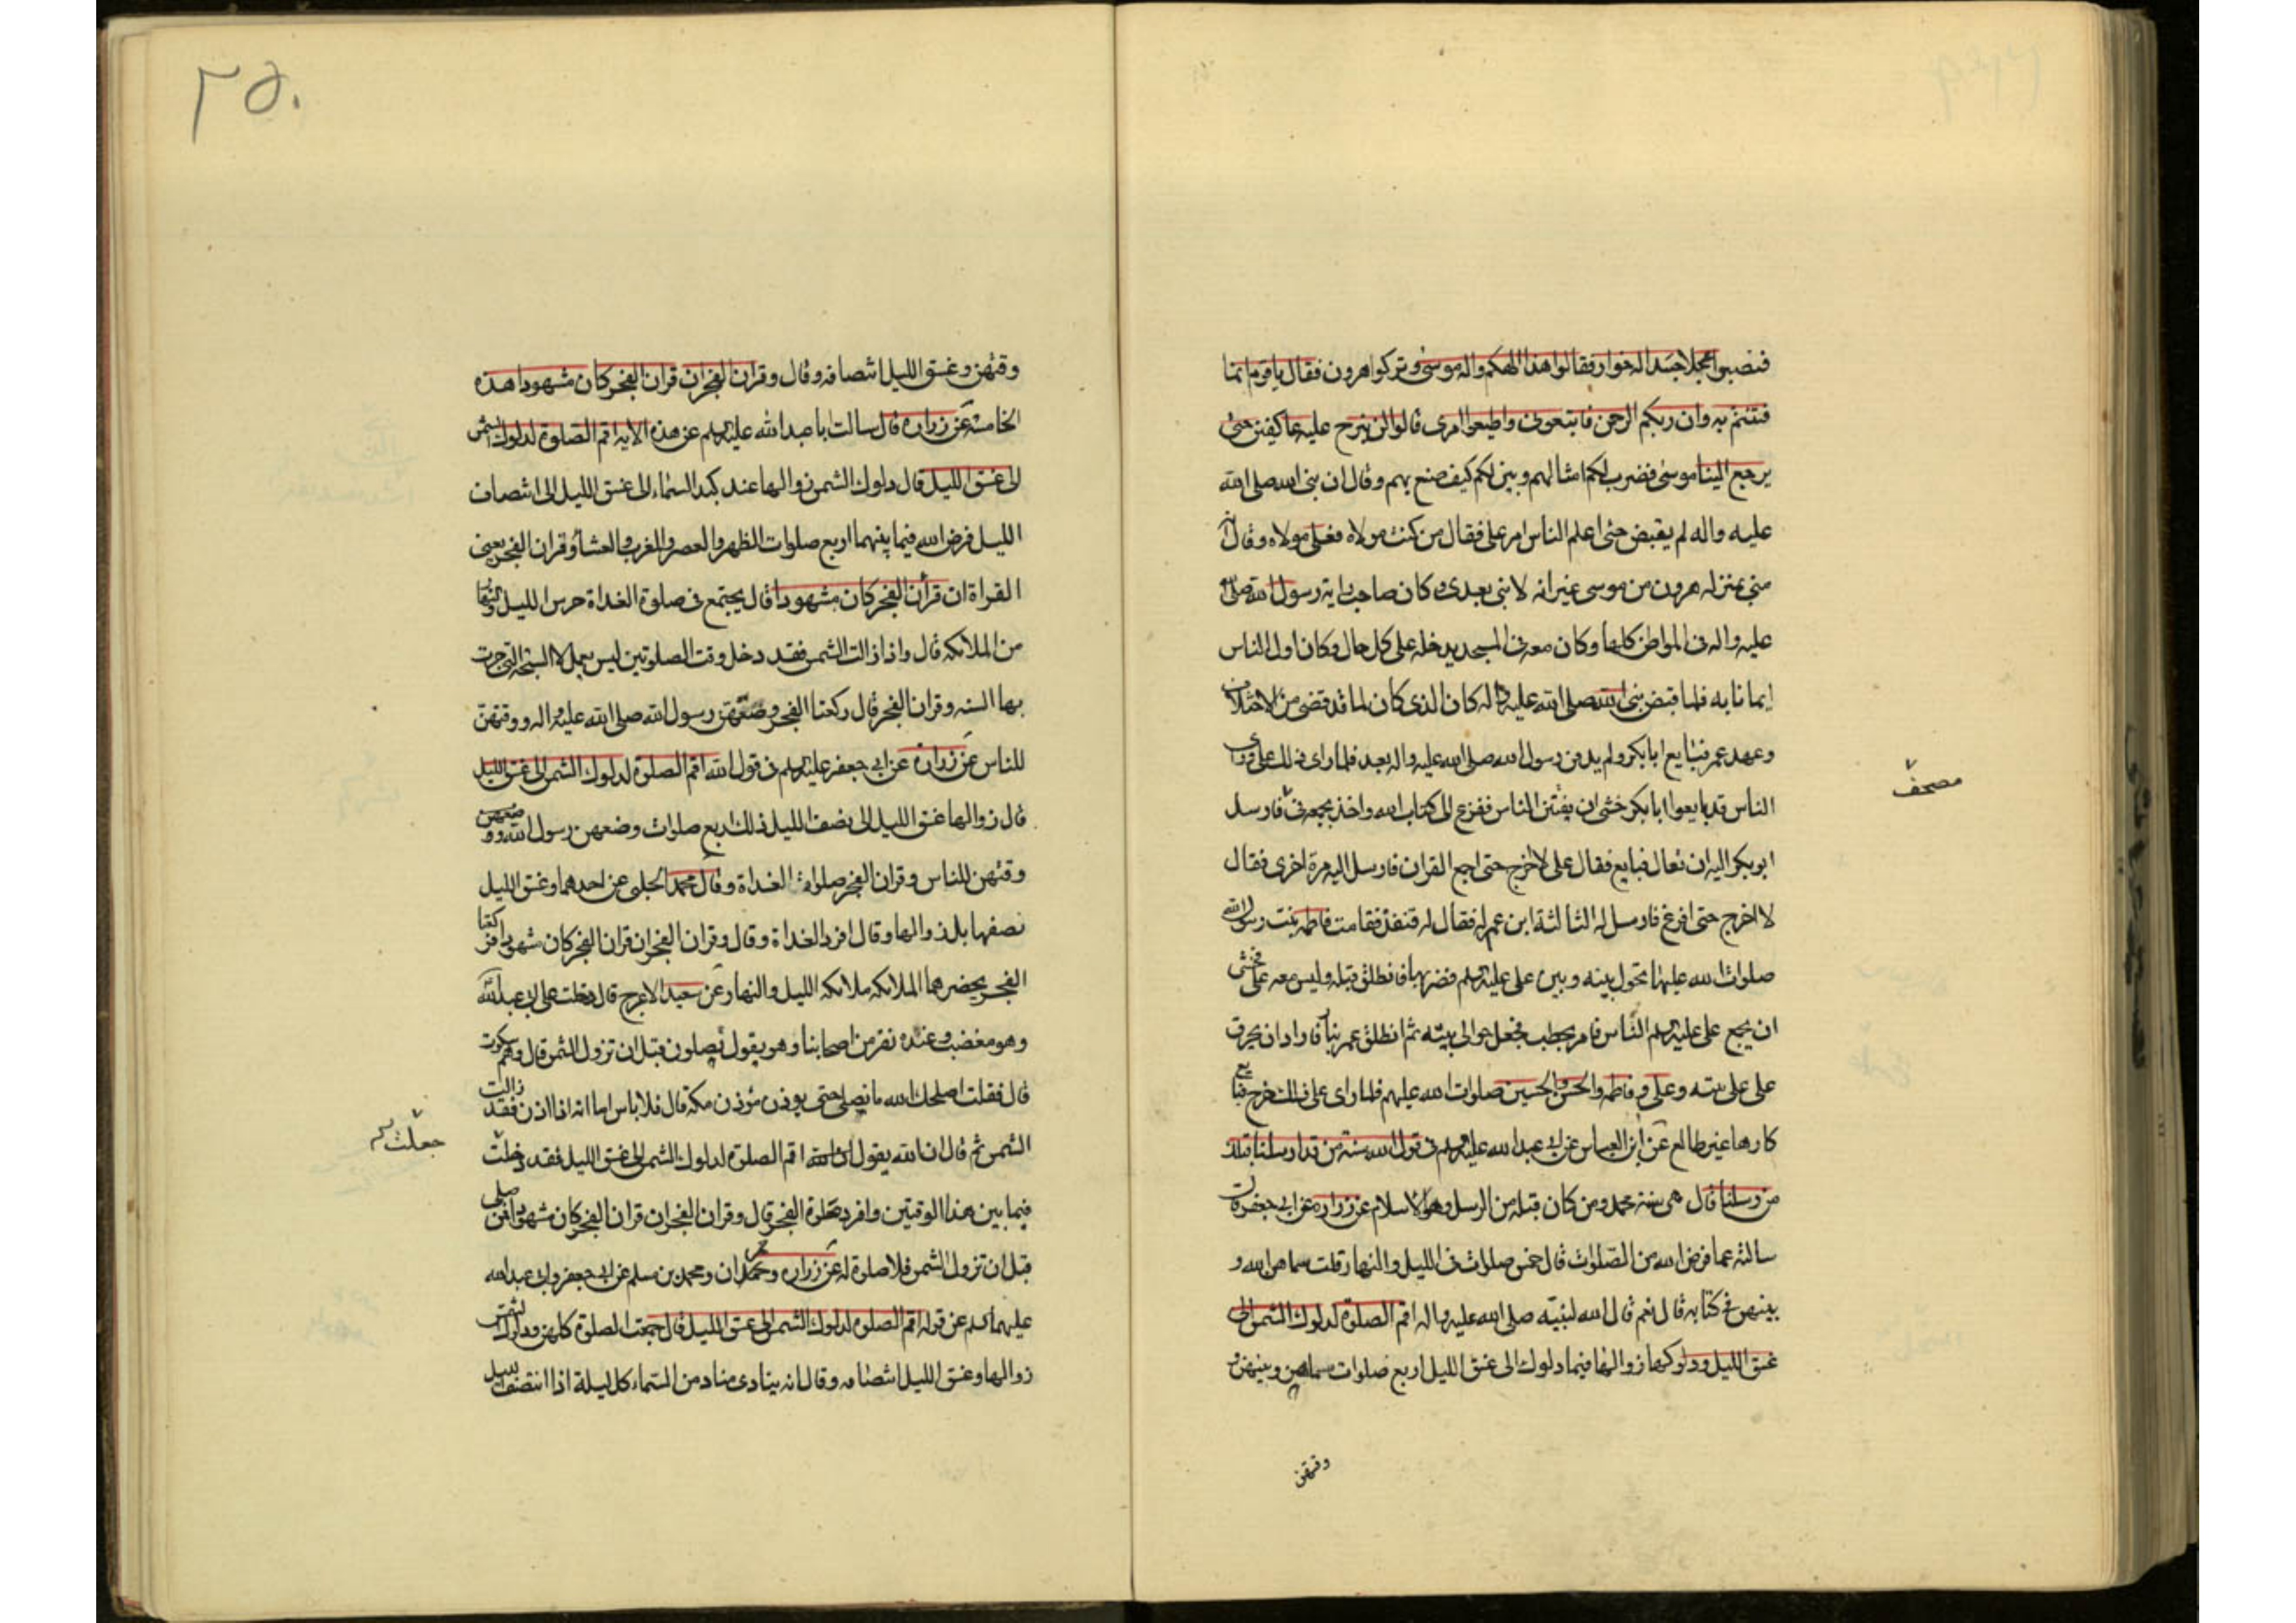 فنصبوا عجلا جسدا له خوار فقالوا هذا الهكم واله موسى وتركوا هرون فقال يا قوم انما
فتنتم به وان ربكم الرحمن فاتبعونى واطيعوا امرى قالوا لن نبرح عليه عاكفين حتى
يرجع الينا موسى فضرب لكم امثالهم وبين لكم كيف صنع بهم وقال ان نبى الله صلى الله
عليه واله لم يقبض حتى اعلم الناس امر على فقال من كنت مولاه فعلى مولاه وقال انه
منى بمنزله هرون من موسى غير انه لا نبى بعدى وكان صاحب راية رسول الله صلى الله
عليه واله فى المواطن كلها وكان معه فى المسجد يدخله على كل حال وكان اول الناس
ايمانا به فلما قبض نبى الله صلى الله عليه واله كان الذى كان لما قد قضى من الاختلاف
وعهد عمر فبايع ابا بكر ولم يدفن رسول الله صلى الله عليه واله بعد فلما راى ذلك على وراى
الناس قد بايعوا ابا بكر خشى ان يفتتن الناس ففزع الى كتاب الله واخذ يجمعه فى فارسل
مصحف
ابو بكر اليه ان تعال فبايع فقال على لا اخرج حتى اجمع القران فارسل اليه مرة اخرى فقال
لا اخرج حتى افرغ فارسل له الثالثة ابن عم له فقال له قنفذ فقامت فاطمه بنت رسول الله
صلوات الله عليها تحول بينه وبين على عليه السلم فضربها فانطلق قنفذ وليس معه على فخشى
ان يجمع على عليه السلم الناس فامر بحطب فجعل حوالى بيته ثم انطلق عمر بنار فاراد ان يحرق
على على بيته وعلى وفاطمه والحسن والحسين صلوات الله عليهم فلما راى على ذلك خرج فبايع
كارها غير طائع عن ابى العباس عن ابى عبد الله عليه السلم فى قول الله سنة من قد ارسلنا قبلك
من رسلنا قال هى سنة محمد ومن كان قبله من الرسل وهو الاسلام عن زراره عن ابى جعفر قال
سالته عما فرض الله من الصلوات قال خمس صلوات فى الليل والنهار قلت سماهن الله و
بينهن فى كتابه قال نعم قال الله لنبيه صلى الله عليه واله اقم الصلوة لدلوك الشمس الى
غسق الليل ودلوكها زوالها فيما دلوك الى غسق الليل اربع صلوات سماهن وبينهن و
وقتهن
٢٥٠
وقتهن وغسق الليل انتصافه وقال وقران الفجر ان قران الفجر كان مشهودا هذه
الخامسه عن زراره قال سالت ابا عبد الله عليه السلم عن هذه الايه اقم الصلوة لدلوك الشمس
الى غسق الليل قال دلوك الشمس زوالها عند كبد السماء الى غسق الليل الى انتصاف
الليل فرض الله فيما بينهما اربع صلوات الظهر والعصر والمغرب والعشاء وقران الفجر يعنى
القراة ان قران الفجر كان مشهودا قال يجتمع فى صلوة الغداة حرس الليل والنهار
من الملائكه قال واذا زالت الشمس فقد دخل وقت الصلوتين ليس يعمل الا السبحه التى جرت
بها السنه وقران الفجر قال ركعتا الفجر وضعهن رسول الله صلى الله عليه واله ووقتهن
للناس عن زراره عن ابى جعفر عليه السلم فى قول الله اقم الصلوة لدلوك الشمس الى غسق الليل
قال زوالها غسق الليل الى نصف الليل ذلك اربع صلوات وضعهن رسول الله و وضعهن
وقتهن للناس وقران الفجر صلوة الغداة وقال محمد الحلبى عن احدهما وغسق الليل
نصفها بل زوالها وقال افرد الغداة وقال وقران الفجر ان قران الفجر كان مشهودا فركعتا
الفجر يحضرهما الملائكه ملائكه الليل والنهار عن سعيد الاعرج قال دخلت على ابى عبد الله
وهو مغضب وعنده نفر من اصحابنا وهو يقول تصلون قبل ان تزول الشمس قال وهم سكوت
قال فقلت اصلحك الله ما نصلى حتى يوذن مؤذن مكة قال فلا باس اما انه اذا اذن فقد زالت
الشمس ثم قال ان الله يقول اقم الصلوة لدلوك الشمس الى غسق الليل فقد دخلت
جعلت
فيما بين هذا الوقتين وافرد صلوة الفجر قال وقران الفجر ان قران الفجر كان مشهودا فمن صلى
قبل ان تزول الشمس فلا صلوة له عن زراره وحمران ومحمد بن مسلم عن ابى جعفر وابى عبد الله
عليهما السلم عن قوله اقم الصلوة لدلوك الشمس الى غسق الليل قال جمعت الصلوة كلهن ودلوك الشمس
زوالها وغسق الليل انتصافه وقال انه ينادى مناد من السماء كل ليلة اذا انتصف الليل